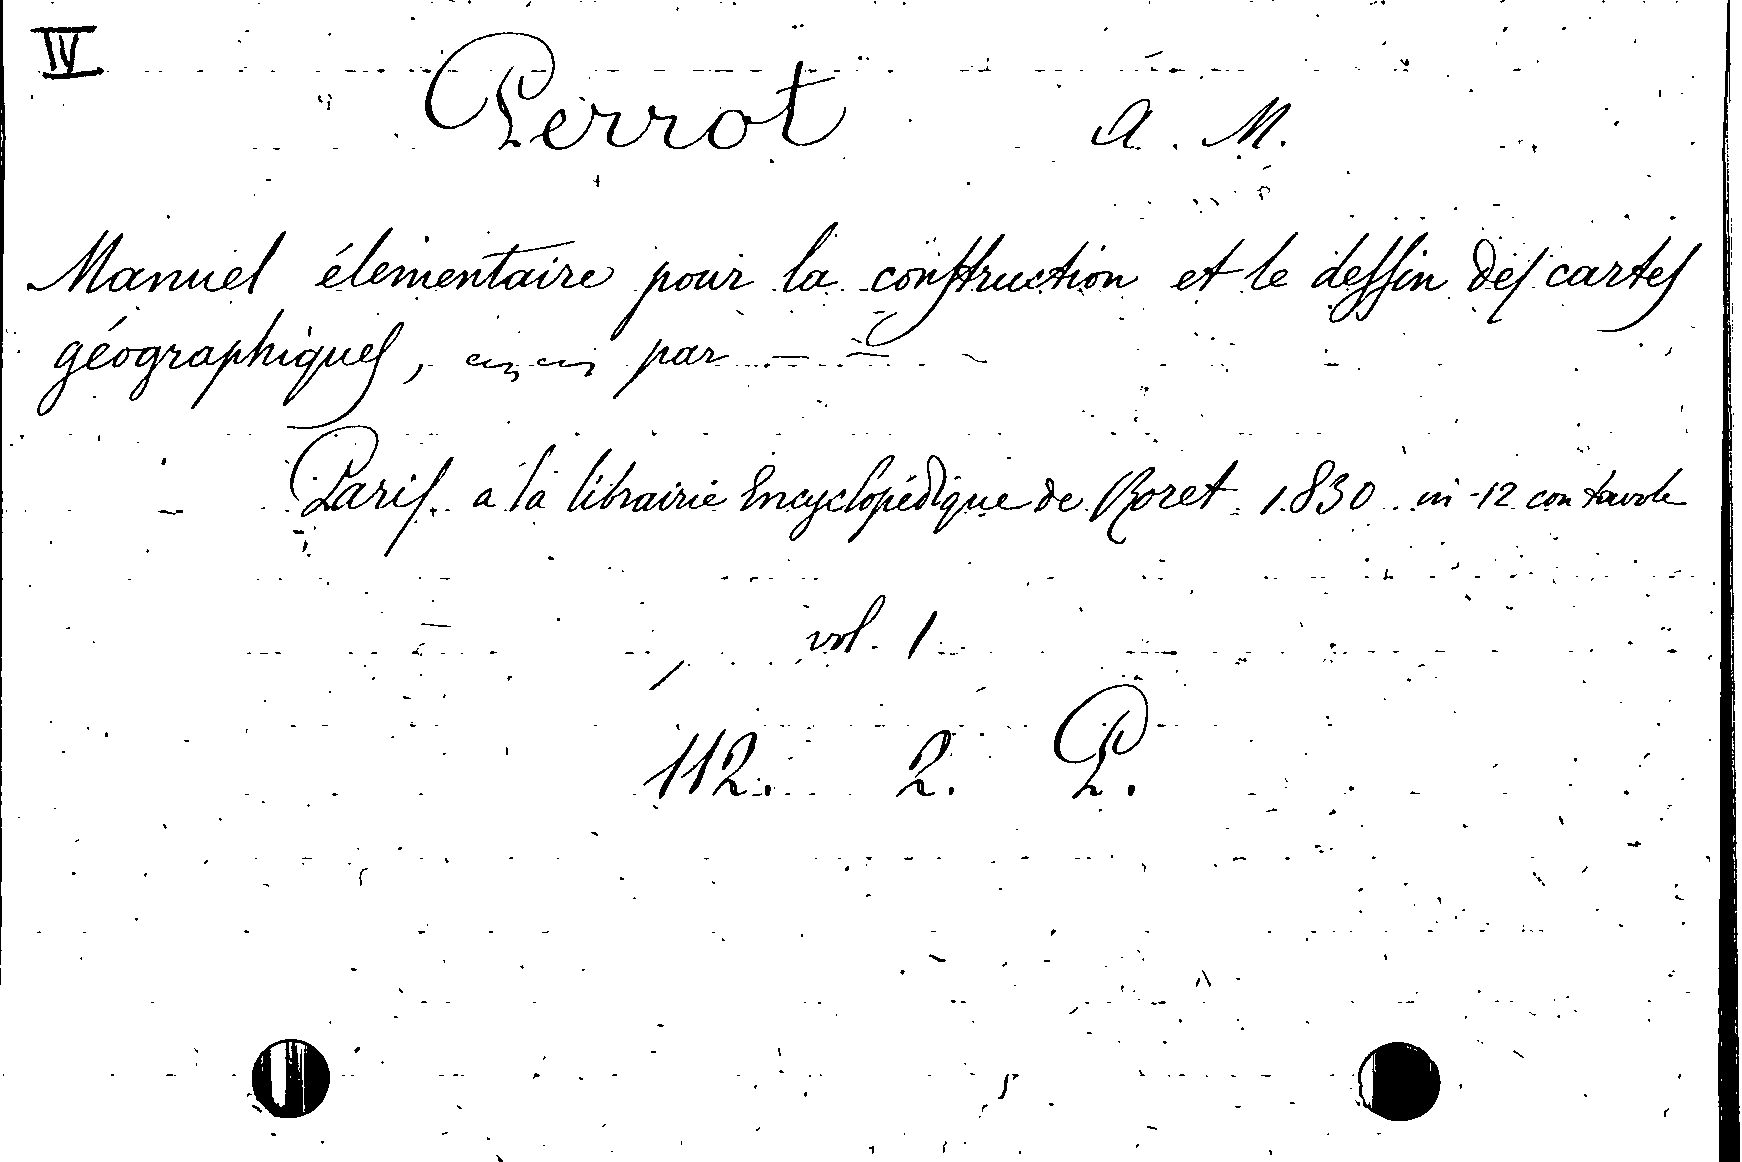 IV
Perrot A. M.
Manuel élémentaire pour la construction et le dessin des cartes
géographiques, par —
Paris. a la librairie Encyclopédique de Roret. 1830 in-12 con tavole
vol. 1
112. 2. P.